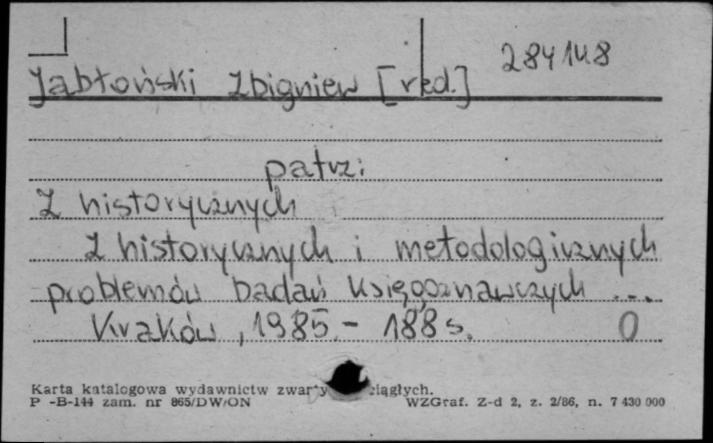 284148
Jabłoński Zbigniew [red.]
patrz:
Z historycznych
Z historycznych i metodologicznych
problemów badań księgoznawczych ...
Kraków, 1985.- 188 s. 0
Karta katalogowa wydawnictw ciągłych.
P -B-144 zam. nr 865/DW/ON WZGraf. Z-d 2, z. 2/86, n. 7 430 000